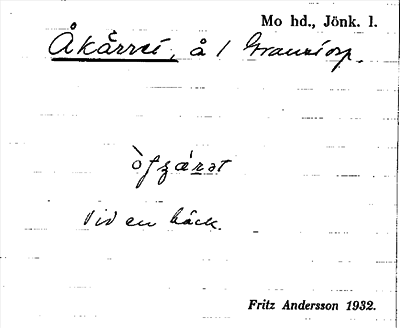 Mo hd., Jönk. l.
Åkärret, å /
Vid en bäck.
Fritz Andersson 1932.